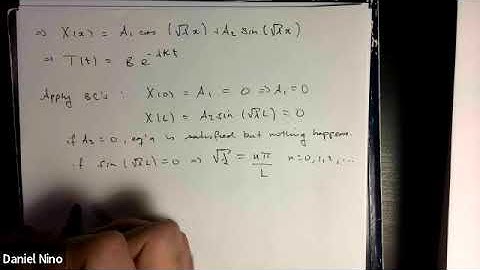 ⇒ X(x) = A₁ cos (√λ x) + A₂ sin (√λ x)
⇒ T(t) = B e^{-λKt}
Apply BC's : X(0) = A₁ = 0 ⇒ A₁ = 0
X(L) = A₂ sin (√λ L) = 0
if A₂ = 0, eq'n is satisfied but nothing happens.
if sin (√λ L) = 0 ⇒ √λ = nπ/L n = 0, 1, 2, ...
Daniel Nino